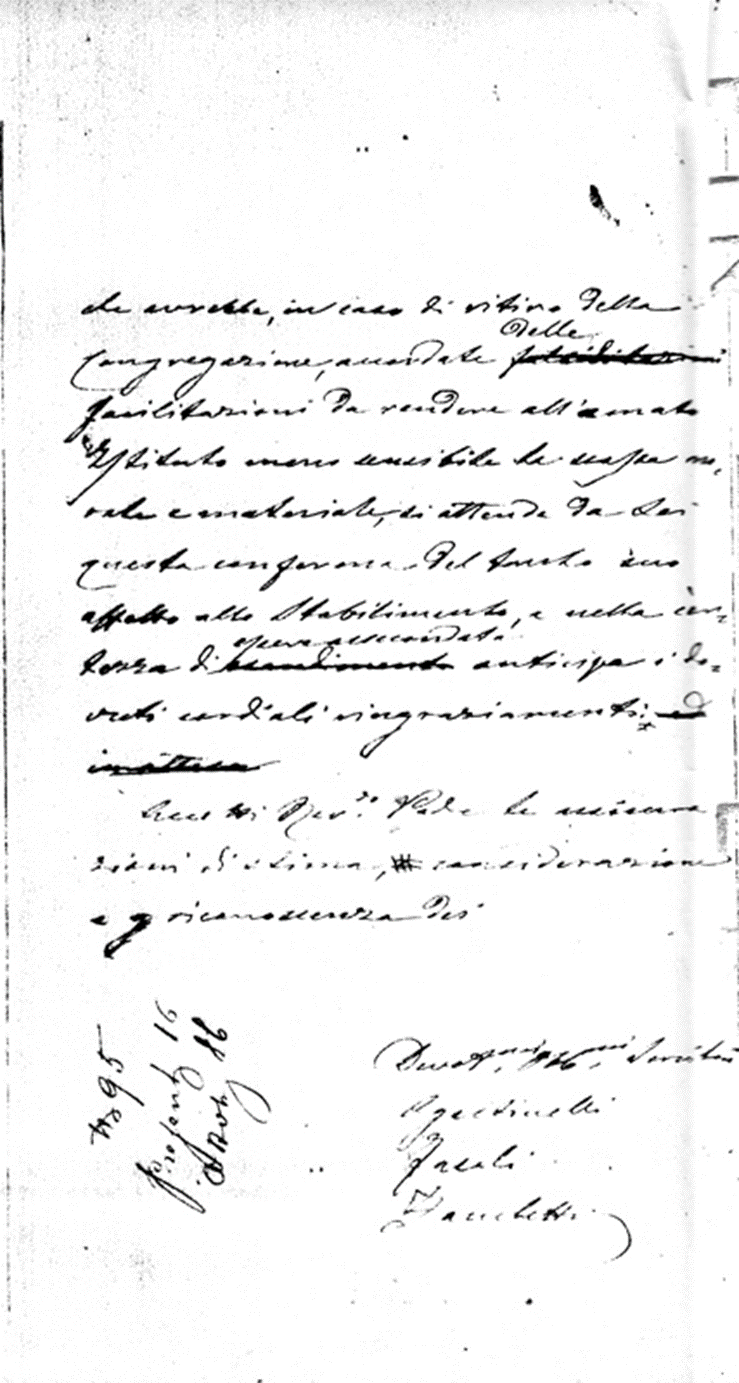 che avrebbe, in caso di ritiro della
delle
Congregazione, accordate
facilitazioni da rendere all'amato
Istituto meno sensibile la scossa mo-
rale e materiale, si attende da Lei
questa conferma del tanto suo
affetto allo Stabilimento, e nella cer-
opera assecondata
tezza di assecondimento anticipa i do-
vuti cordiali ringraziamenti: ed
in attesa
Accetti Rev.do Padre le assicura
zioni di stima, considerazione
e riconoscenza dei
Devot.mi Servitori
Agostinelli
Fasoli
Zanchetti
N 95